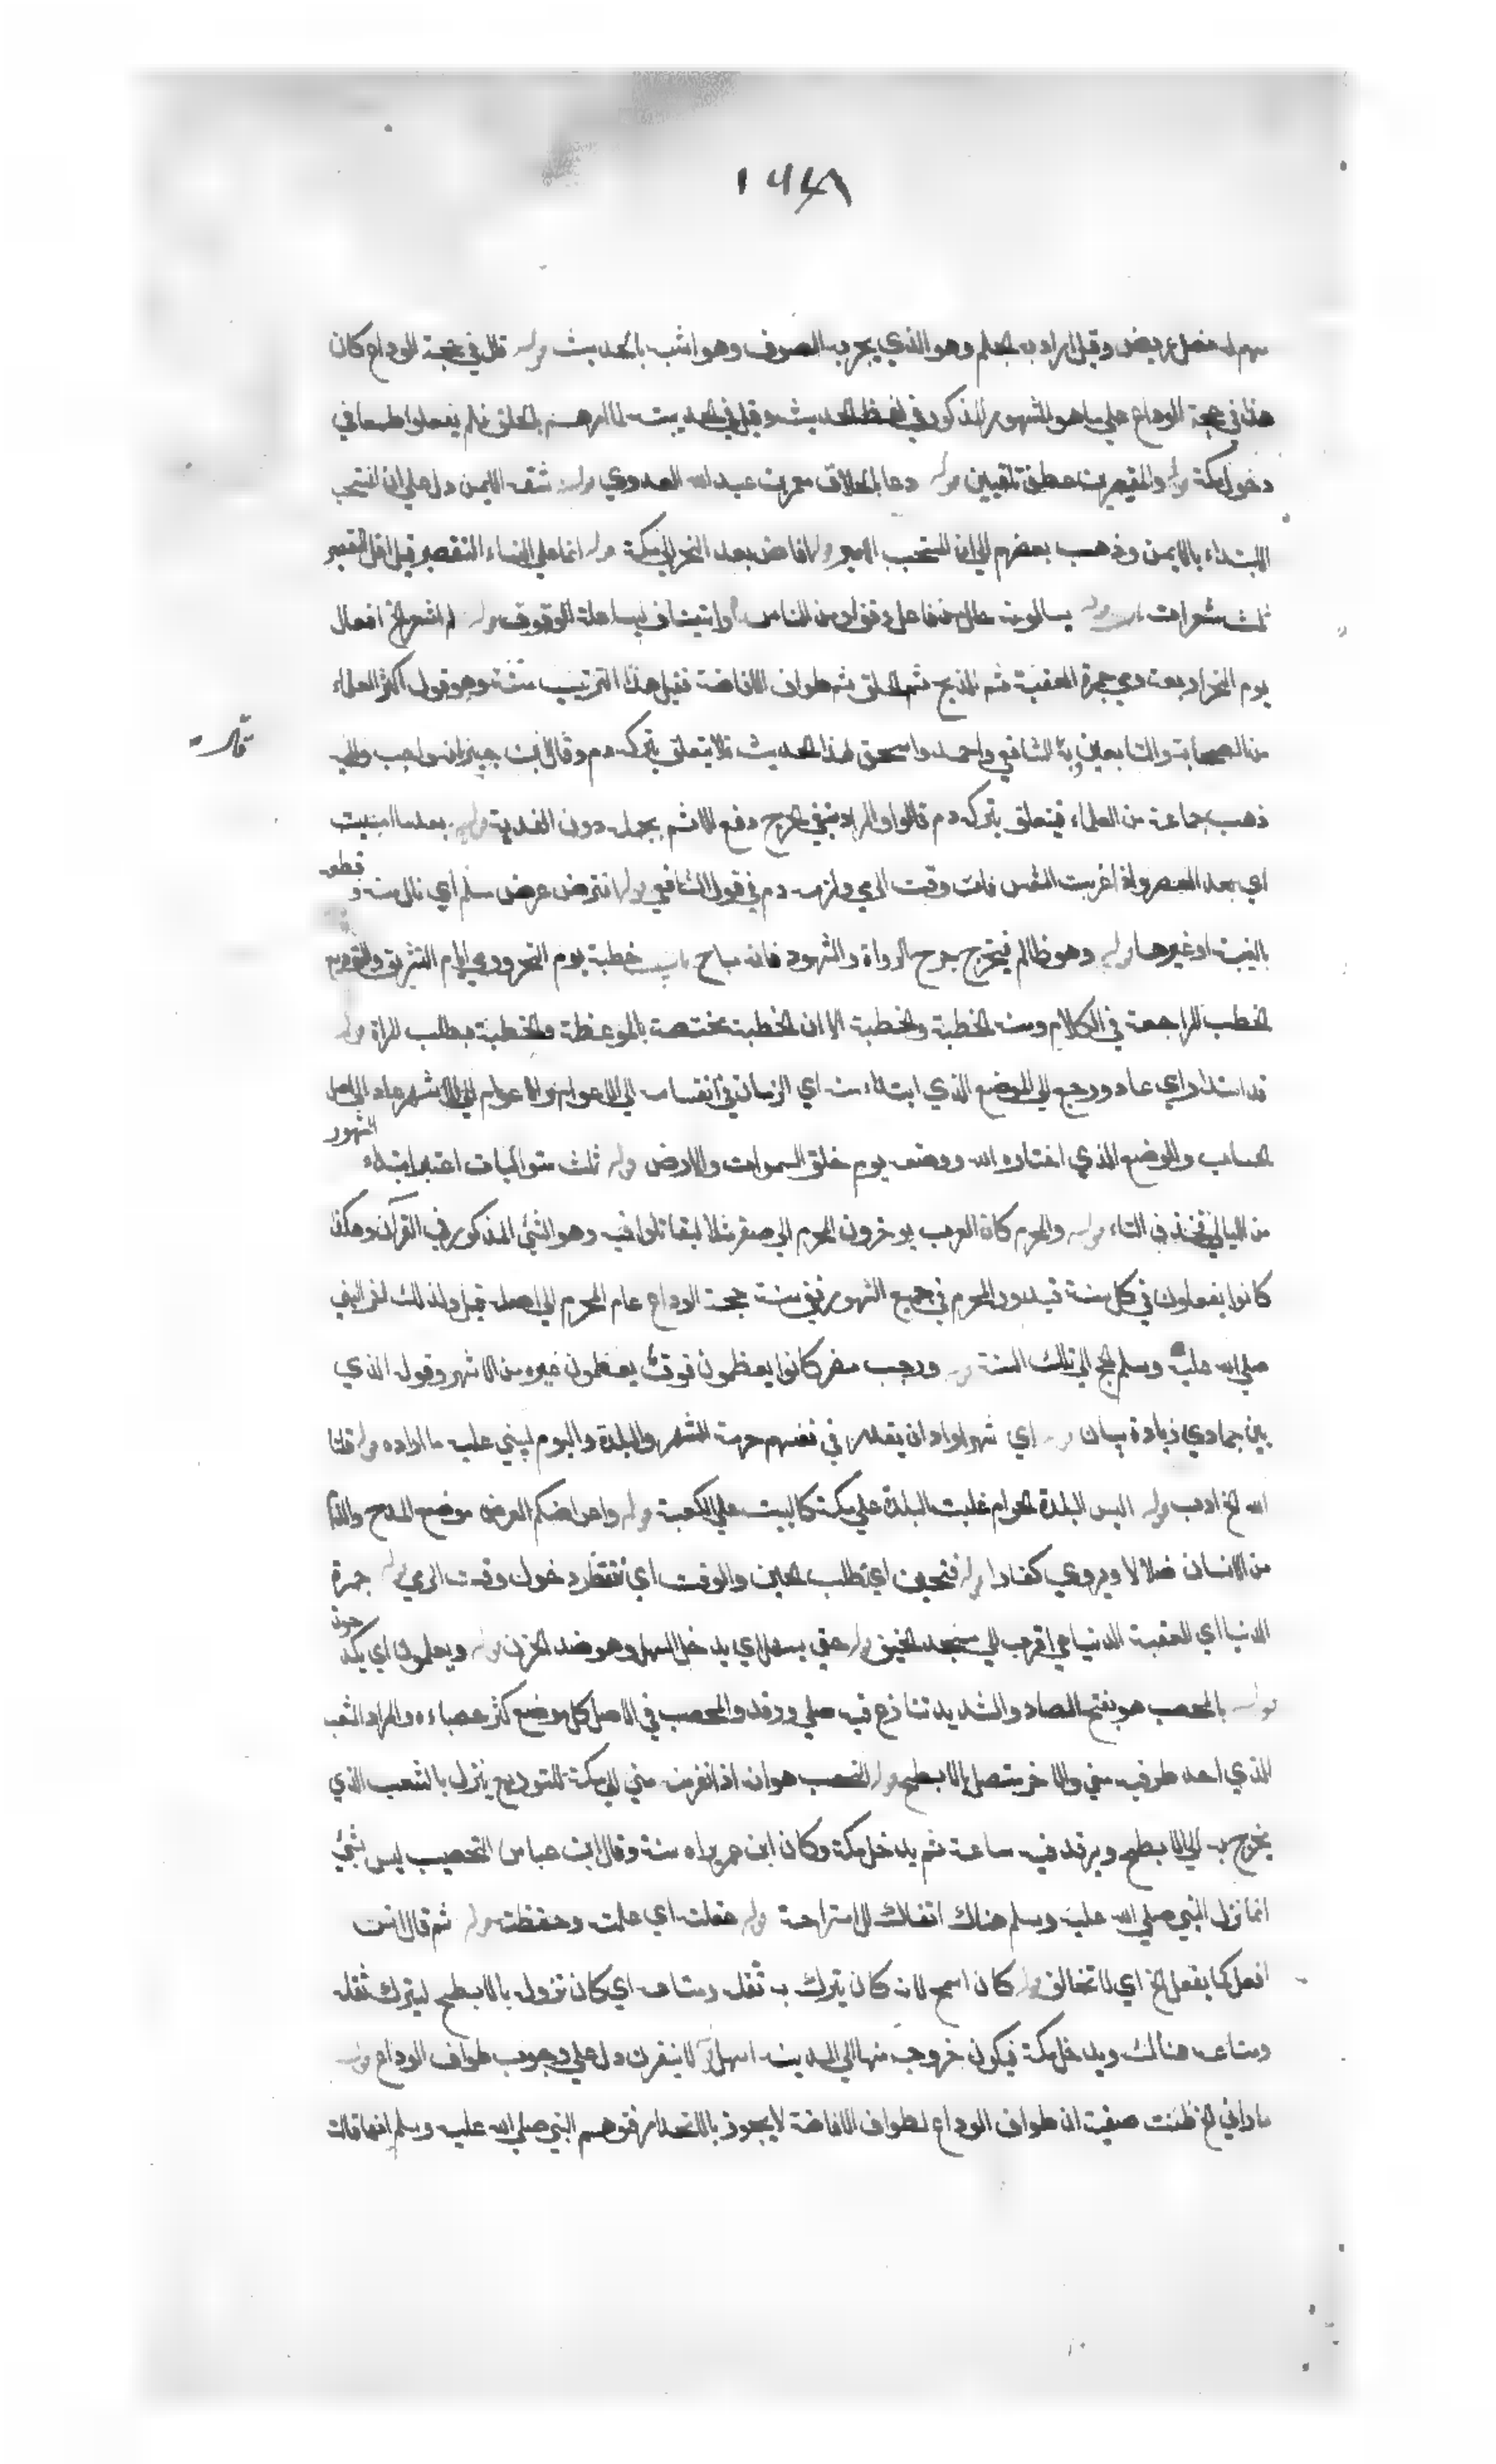 ١٩٤٨
سهم له نصل عريض وقيل المراد به الجلم وهو الذي يجز به الصوف وهو اشبه بالحديث قوله قال في حجة الوداع كان
هذا في حجة الوداع علي ما هو المشهور المذكور في لفظ الحديث وقيل في الحديبية لما امرهم بالحلق فلم يفعلوا طمعا في
دخول مكة قوله والمقصرين عطف تلقين قوله دعا الحلاق معمر بن عبد الله العدوي قوله شقه الايمن دل علي ان المستحب
الابتداء بالايمن وذهب بعضهم الي ان المستحب الايسر قوله افاض بعد النحر الي مكة قوله انما علي النساء التقصير قيل اقل التقصير
ثلث شعرات قوله يسألونه حال من فاعل وقف او من الناس او استيناف لبيان علة الوقوف قوله لم اشعر الخ افعال
يوم النحر اربعة رمي جمرة العقبة ثم الذبح ثم الحلق ثم طواف الافاضة فقيل هذا الترتيب سنة وهو قول اكثر العلماء
من الصحابة والتابعين وبه الشافعي واحمد واسحق لهذا الحديث فلا يتعلق بتركه دم وقال ابن جبير انه واجب واليه
قال
ذهب جماعة من العلماء فيتعلق بتركه دم قالوا والمراد بنفي الحرج دفع الاثم بجهله دون الفدية قوله بعد ما امسيت
اي بعد العصر واذا غربت الشمس فات وقت الرمي ولزمه دم في قول الشافعي قوله افترض عرض مسلم اي نال منه وقطعه
بالغيبة او غيرها قوله وهو ظالم فيخرج جرح الرواة والشهود فانه مباح باب خطبة يوم النحر ورمي ايام التشريق والتوديع
الخطب المراجعة في الكلام ومنه الخطبة والخطبة الا ان الخطبة مختصة بالموعظة والخطبة بطلب المراة قوله
قد استدار اي عاد ورجع الي الموضع الذي ابتداء منه اي الزمان في انقسامه الي الاعوام والاعوام الي الاشهر عاد الي اصل
الحساب والموضع الذي اختاره الله ووضعه يوم خلق السموات والارض قوله ثلث متواليات اعتبر ابتداء الشهور
من الليالي فحذف التاء قوله والمحرم كانت العرب يوخرون المحرم الي صفر مثلا ليقاتلوا فيه وهو النسئ المذكور في القرآن وهكذا
كانوا يفعلون في كل سنة فيدور المحرم في جميع الشهور ففي سنة حجة الوداع عام المحرم الي اصله قيل ولذلك اخر النبي
صلي الله عليه وسلم الحج الي تلك السنة قوله ورجب مضر كانوا يعظمون فوق ما يعظمون غيره من الاشهر وقوله الذي
بين جمادي زيادة بيان قوله اي شهر اراد ان يقرر في نفسهم حرمة الشهر والبلدة واليوم ليبني عليه ما اراده قوله قلنا
الله الخ ادب قوله اليس البلدة الحرام غلبت البلدة علي مكة كالبيت علي الكعبة قوله واعراضكم العرض موضع المدح والذم
من الانسان ضلالا ويروي كفارا قوله فنتحين اي نطلب الحين والوقت اي ننتظر دخول وقت الرمي قوله جمرة
الدنيا اي العقبة الدنيا هي اقرب الي مسجد الخيف قوله حتي يسهل اي يدخل السهل وهو ضد الحزن قوله ويعلمون اي يكدحون
قوله بالمحصب هو بفتح الصاد والتشديد تنازع فيه صلي ورقد والمحصب في الاصل كل موضع كثر حصباءه والمراد الشعب
الذي احد طرفيه مني والاخر متصل بالابطح قوله التحصيب هو انه اذا نفر من مني الي مكة للتوديع ينزل بالشعب الذي
يخرج به الي الابطح ويرقد فيه ساعة ثم يدخل مكة وكان ابن عمر يراه سنة وقال ابن عباس التحصيب ليس بشئ
انما نزل النبي صلي الله عليه وسلم هناك اتفاقا للاستراحة قوله عقلت اي علمت وحفظت قوله ثم قال انس
افعل كما يفعل الخ اي لا تخالف قوله كان اسمح لانه كان يترك به ثقله ومتاعه اي كان نزوله بالابطح ليترك ثقله
ومتاعه هنالك ويدخل مكة فيكون خروجه منها الي المدينة اسهل قوله لا ينفرن دل علي وجوب طواف الوداع قوله
ما اراني الخ ظنت صفية ان طواف الوداع لطواف الافاضة لا يجوز فتوهم النبي صلي الله عليه وسلم انها قالت